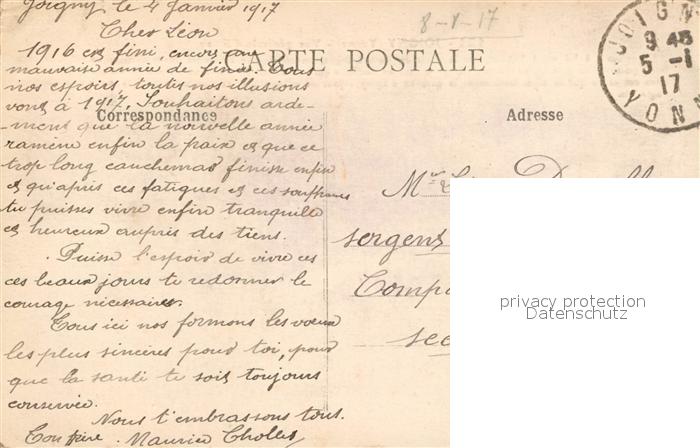 Joigny le 4 Janvier 1917
8-1-17
Cher Léon
1916 est fini, encore une
mauvaise année de finie. Tous
nos espoirs, toutes nos illusions
vont à 1917. Souhaitons arde-
-ment que la nouvelle année
ramène enfin la paix et que ce
trop long cauchemar finisse enfin
et qu'après ces fatigues et ces souffrances
tu puisses vivre enfin tranquille
et heureux auprès des tiens.
Puisse l'espoir de vivre ces
ces beaux jours te redonner le
courage nécessaire.
Tous ici nos formons les voeux
les plus sincères pour toi, pour
que la santé te soit toujours
conservée.
Nous t'embrassons tous.
Ton frère. Maurice
CARTE POSTALE
Correspondance
Adresse
JOIGN
9 45
5 -1
17
YONN
Mr
sergent
Comp
sec
privacy protection
Datenschutz